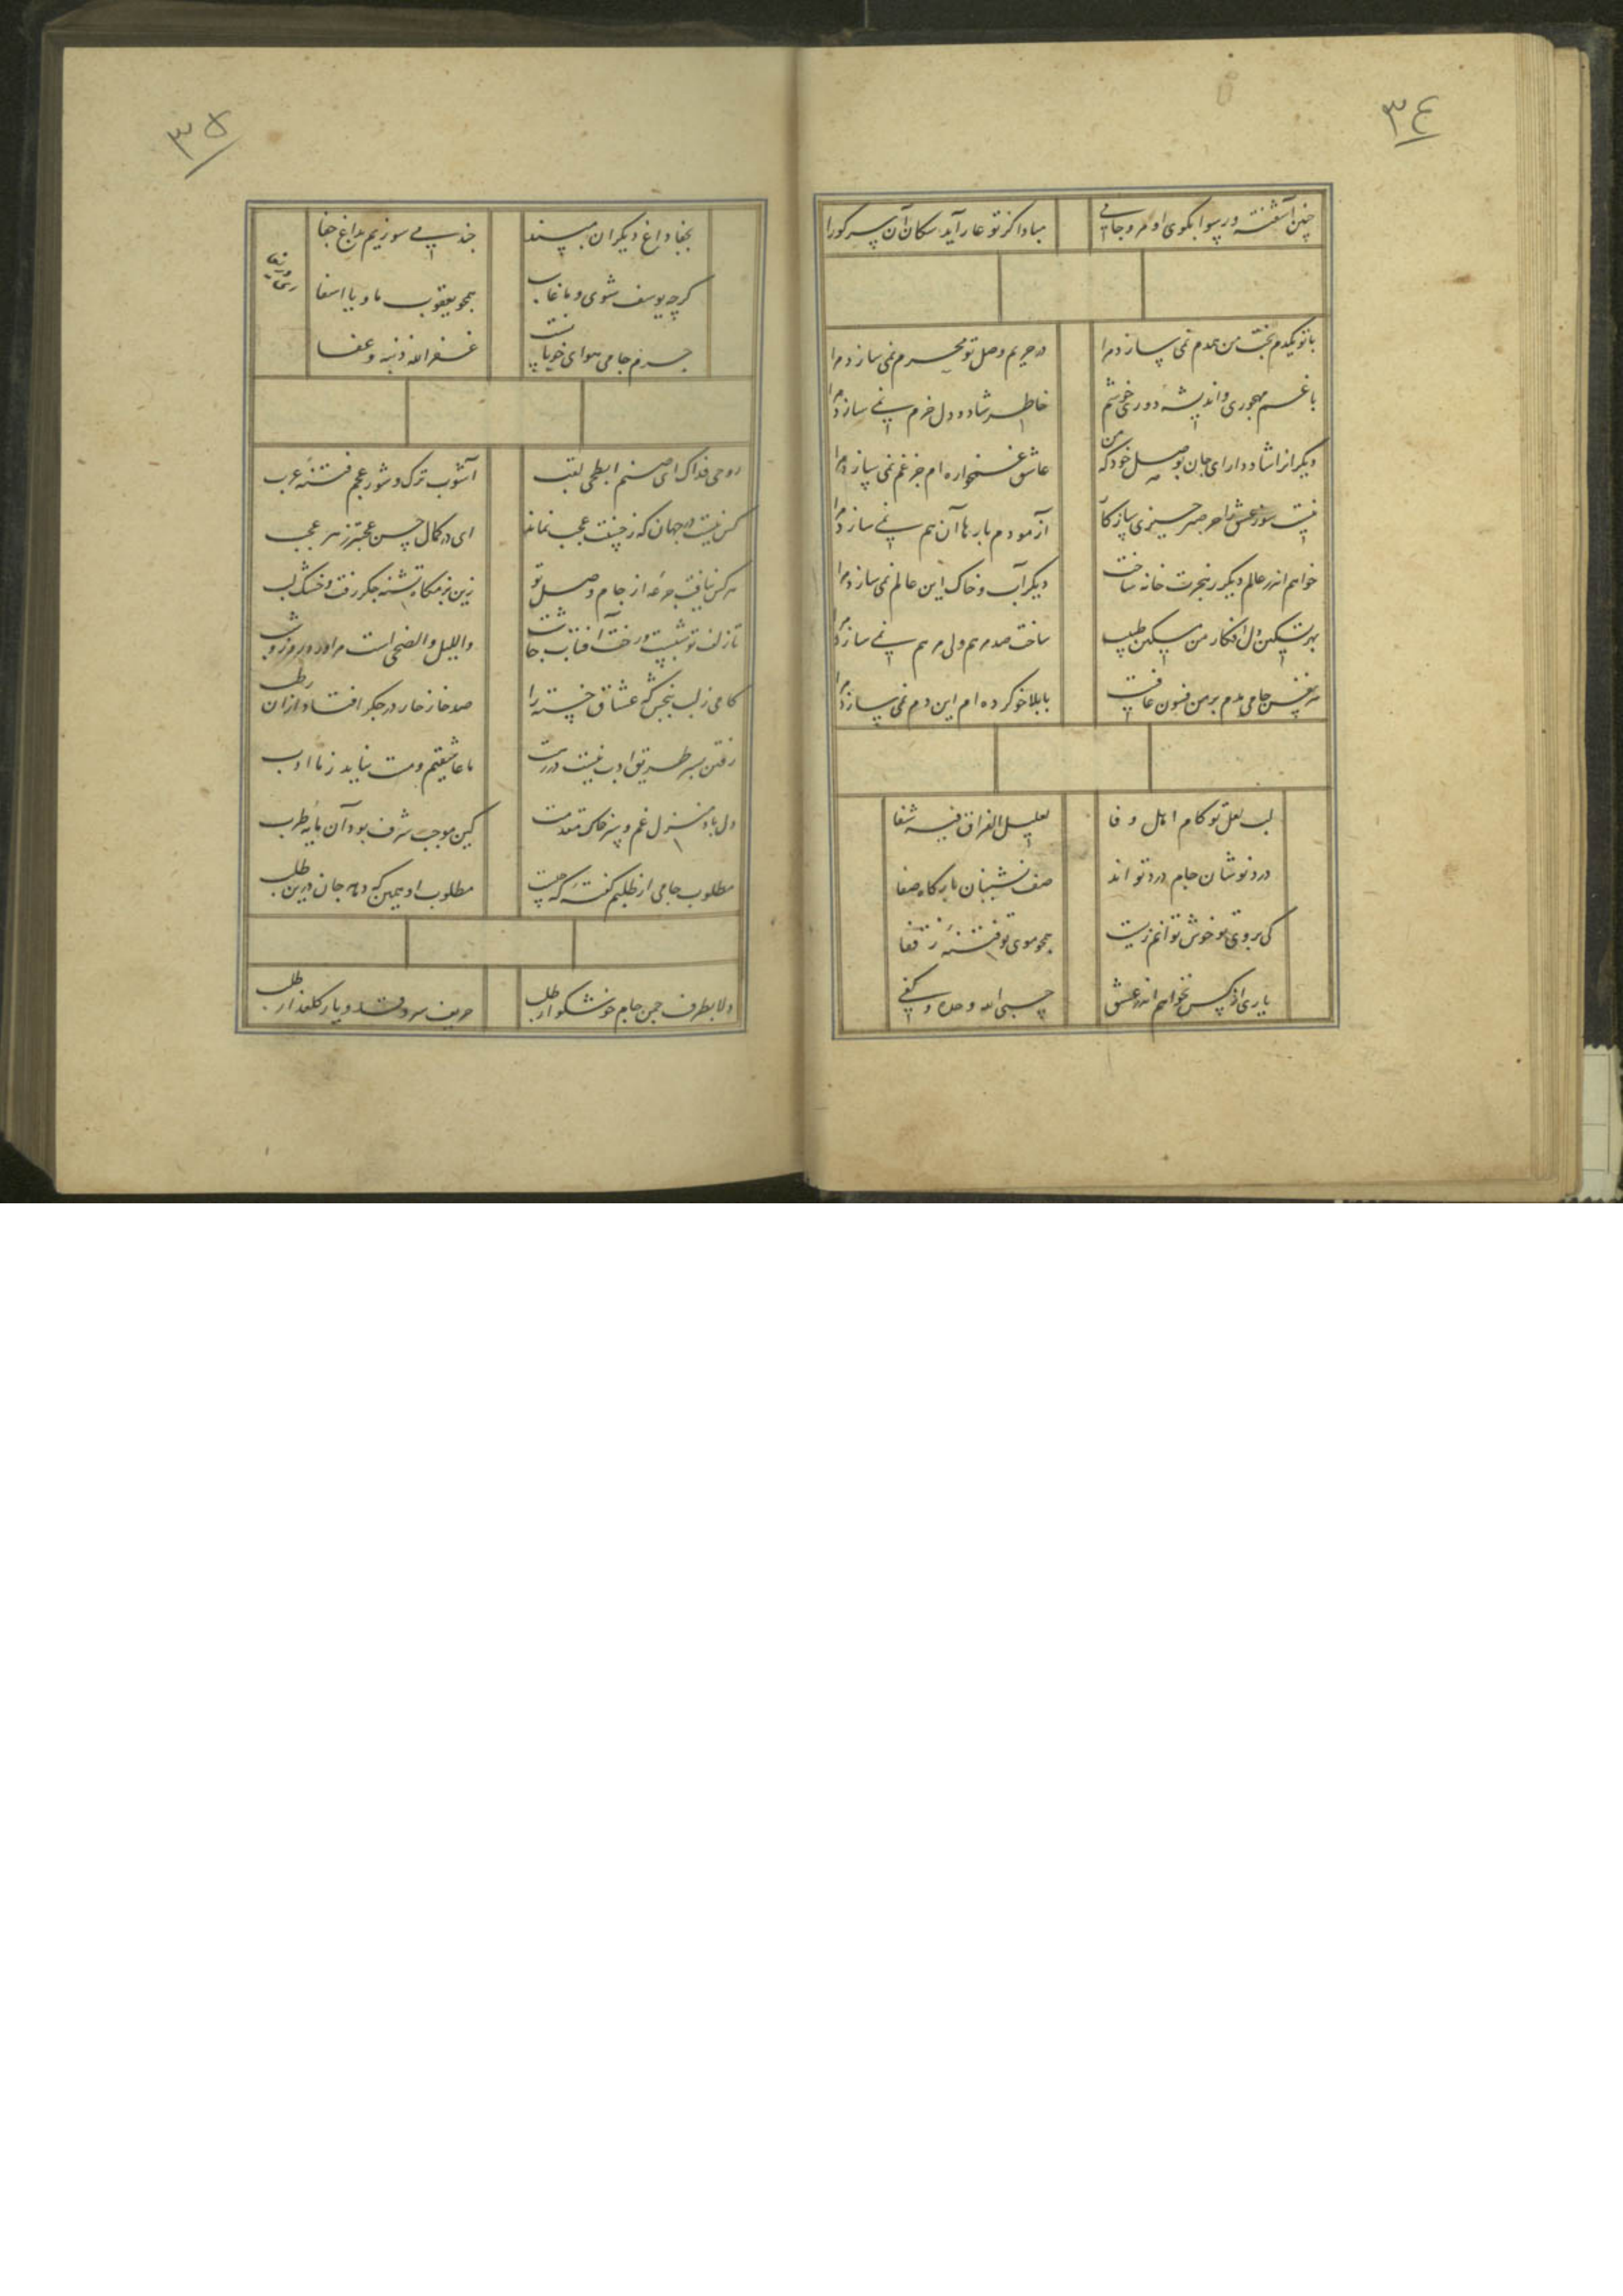 ٣٤
چنین آشفته و رسوا بکوی او مرو جامی
مبادا کز تو عار آید سکان آن سر کو را
با تو یکدم بخت من همدم نمی سازد مرا
در حریم وصل تو محرم نمی سازد مرا
با غم مهجوری و اندیشه دوری خوشم
خاطر شاد و دل خرم نمی سازد مرا
دیکرانرا شاد دار ای جان بوصل خود که من
عاشق غمخواره ام جز غم نمی سازد مرا
نیست سوز عشق را جز صبر چیزی سازکار
آزمودم بارها آن هم نمی سازد مرا
خواهم اندر عالم دیکر ز هجرت خانه ساخت
دیکر آب و خاک این عالم نمی سازد مرا
بهر تسکین دل افکار من مسکین طبیب
ساخت صد مرهم ولی مرهم نمی سازد مرا
هر نفس جامی مدم بر من فسون عافیت
با بلا خو کرده ام این دم نمی سازد مرا
لب لعل تو کام اهل وفا
لعلیل الفراق فیه شفا
درد نوشان جام درد تو اند
صف نشینان بارکاه صفا
کی بروی تو خوش توانم زیست
همچو موی تو فتنه ز قفا
یاری از کس نخواهم اندر عشق
حسبی الله وحده و کفی
٣۵
بجفا داغ دیکران مپسند
چند می سوزیم بداغ جفا
کرچه یوسف شوی و ما غایب
همچو یعقوب ما و یا اسفا
جرم جامی هوای خوبانست
غفر الله ذنبه و عفا
روحی فداک ای صنم ابطحی لقب
آشوب ترک و شور عجم فتنه عرب
کس نیست در جهان که ز حسنت عجب نماند
ای در کمال حسن عجبتر ز هر عجب
هر کس نیافت جرعه از جام وصل تو
زین بزمکاه تشنه جکر رفت و خشک لب
تا زلف تو شبست و رخت آفتاب چاشت
واللیل والضحی است مرا ورد روز و شب
کامی ز لب ببخش که عشاق خسته را
صد خار خار در جکر افتاد ازان رطب
رفتن بسر طریق ادب نیست در رهت
ما عاشقیم و مست نیاید ز ما ادب
دل باد منزل غم و سر خاک مقدمت
کین موجب شرف بود آن مایه طرب
مطلوب جامی از طلبم کفته که چیست
مطلوب او همین که دهد جان درین طلب
دلا بطرف چمن جام خوشکوار طلب
حریف سرو قد و یار کلعذار طلب